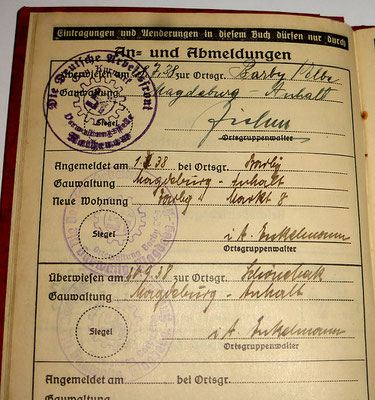 Eintragungen und Aenderungen in diesem Buch dürfen nur durch
An- und Abmeldungen
Die Deutsche Arbeitsfront
Verwaltungsstelle
Rathenow
Überwiesen am 7.38 zur Ortsgr. Barby Elbe
Gauwaltung Magdeburg - Anhalt
Siegel
Ortsgruppenwalter
Angemeldet am 38 bei Ortsgr. Barby
Gauwaltung Magdeburg - Anhalt
Neue Wohnung Barby Markt 8
Siegel
i. A. Enkelmann
Ortsgruppenwalter
Überwiesen am 9.38 zur Ortsgr.
Gauwaltung Magdeburg - Anhalt
Siegel
i. A. Enkelmann
Ortsgruppenwalter
Angemeldet am bei Ortsgr.
Gauwaltung